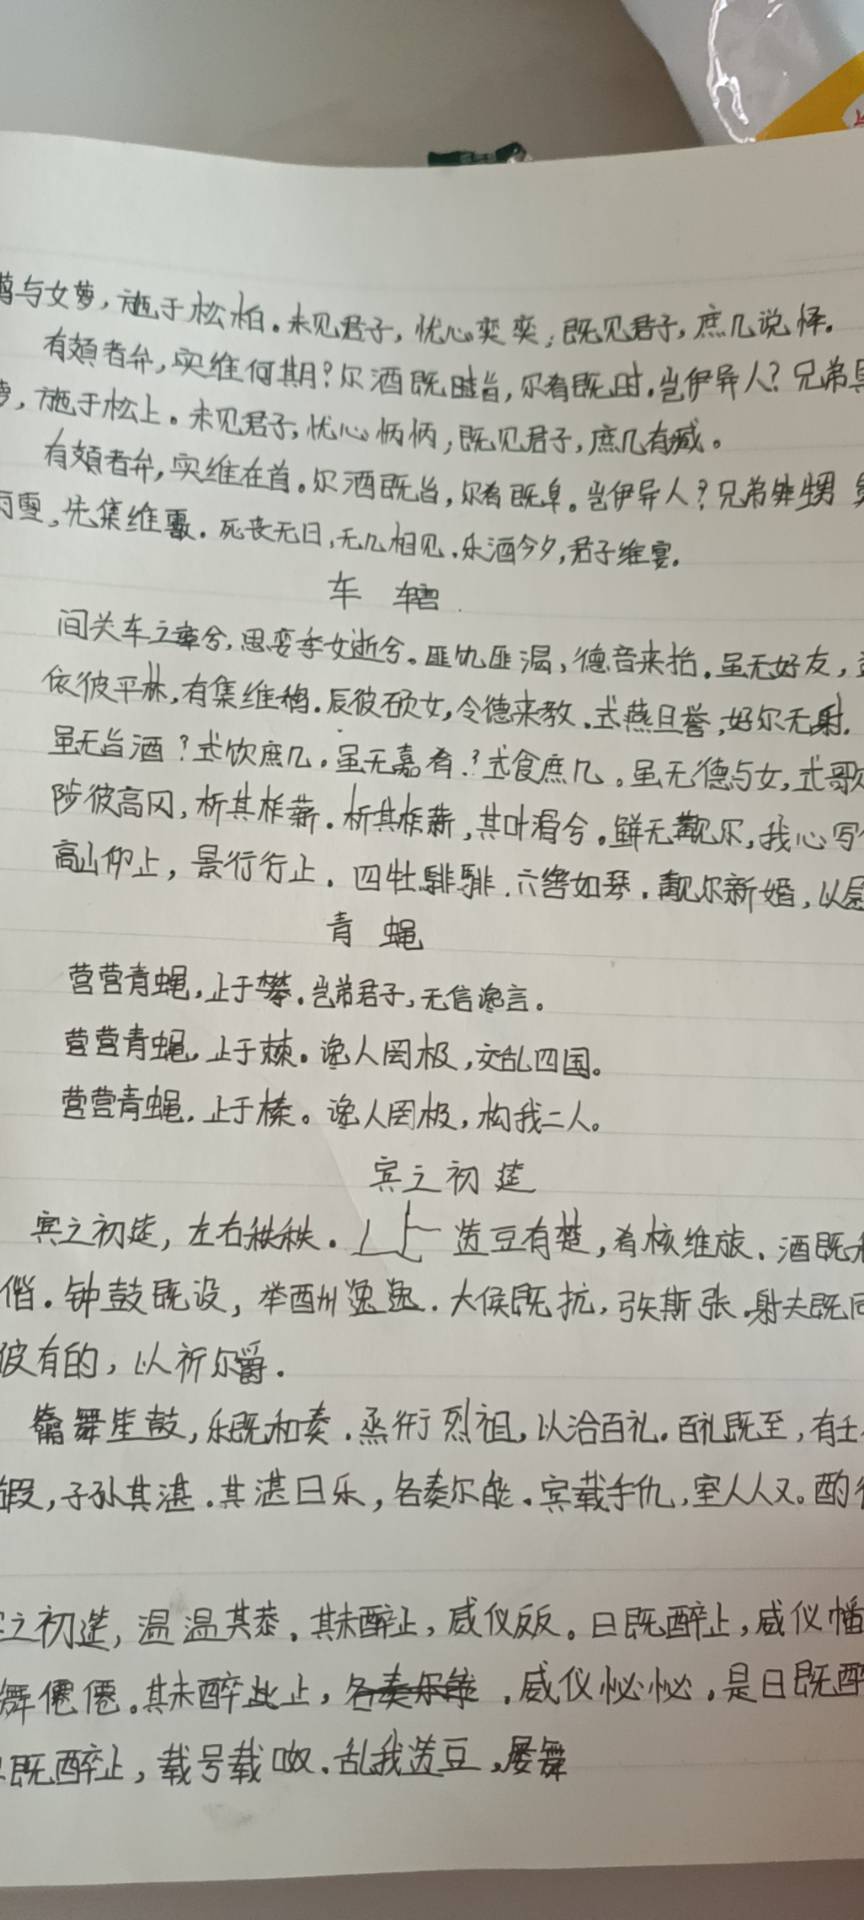 与女萝，施于松柏。未见君子，忧心奕奕；既见君子，庶几说怿。
有頍者弁，实维何期？尔酒既旨，尔肴既时。岂伊异人？兄弟具
，施于松上。未见君子，忧心怲怲；既见君子，庶几有臧。
有頍者弁，实维在首。尔酒既旨，尔肴既阜。岂伊异人？兄弟甥
雨雪，先集维霰。死丧无日，无几相见。乐酒今夕，君子维宴。
车 辖
间关车之舝兮，思娈季女逝兮。匪饥匪渴，德音来括。虽无好友，
依彼平林，有集维鷮。辰彼硕女，令德来教。式燕且誉，好尔无射。
虽无旨酒？式饮庶几。虽无嘉肴？式食庶几。虽无德与女，式歌
陟彼高冈，析其柞薪。析其柞薪，其叶湑兮。鲜我觏尔，我心写
高山仰止，景行行止。四牡騑騑，六辔如琴。觏尔新婚，以
青 蝇
营营青蝇，止于樊。岂弟君子，无信谗言。
营营青蝇，止于棘。谗人罔极，交乱四国。
营营青蝇，止于榛。谗人罔极，构我二人。
宾之初筵
宾之初筵，左右秩秩。笾豆有楚，肴核维旅。酒既
偕。钟鼓既设，举酬逸逸。大侯既抗，弓矢斯张。射夫既同
彼有的，以祈尔爵。
籥舞笙鼓，乐既和奏。烝衎烈祖，以洽百礼。百礼既至，有壬
嘏，子孙其湛。其湛曰乐，各奏尔能。宾载手仇，室人入又。酌
之初筵，温温其恭。其未醉止，威仪反反。曰既醉止，威仪幡
舞僊僊。其未醉止，威仪怭怭。是曰既醉
既醉止，载号载呶。乱我笾豆，屡舞